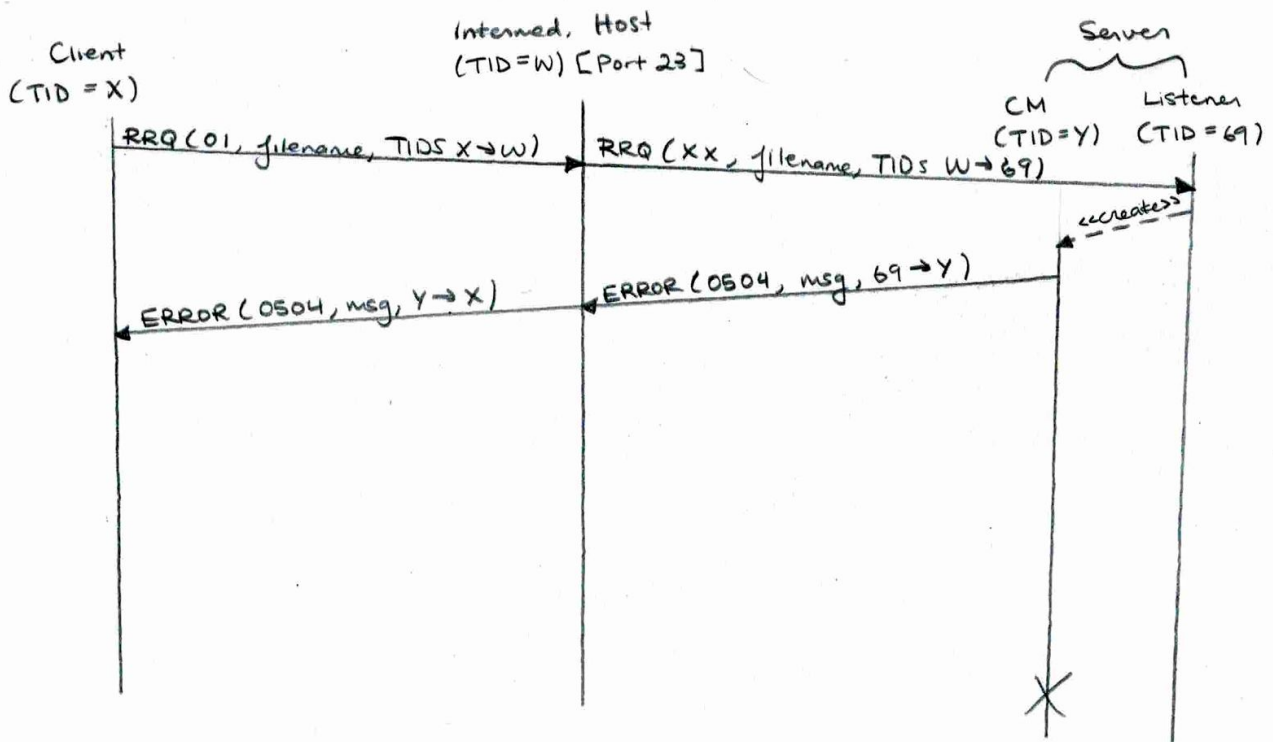 Client
(TID = X)
Intermed. Host
(TID=W) [Port 23]
Server
CM
(TID=Y)
Listener
(TID=69)
RRQ (01, filename, TIDS X→W)
RRQ (XX, filename, TIDs W→69)
<<create>>
ERROR (0504, msg, 69→Y)
ERROR (0504, msg, Y→X)